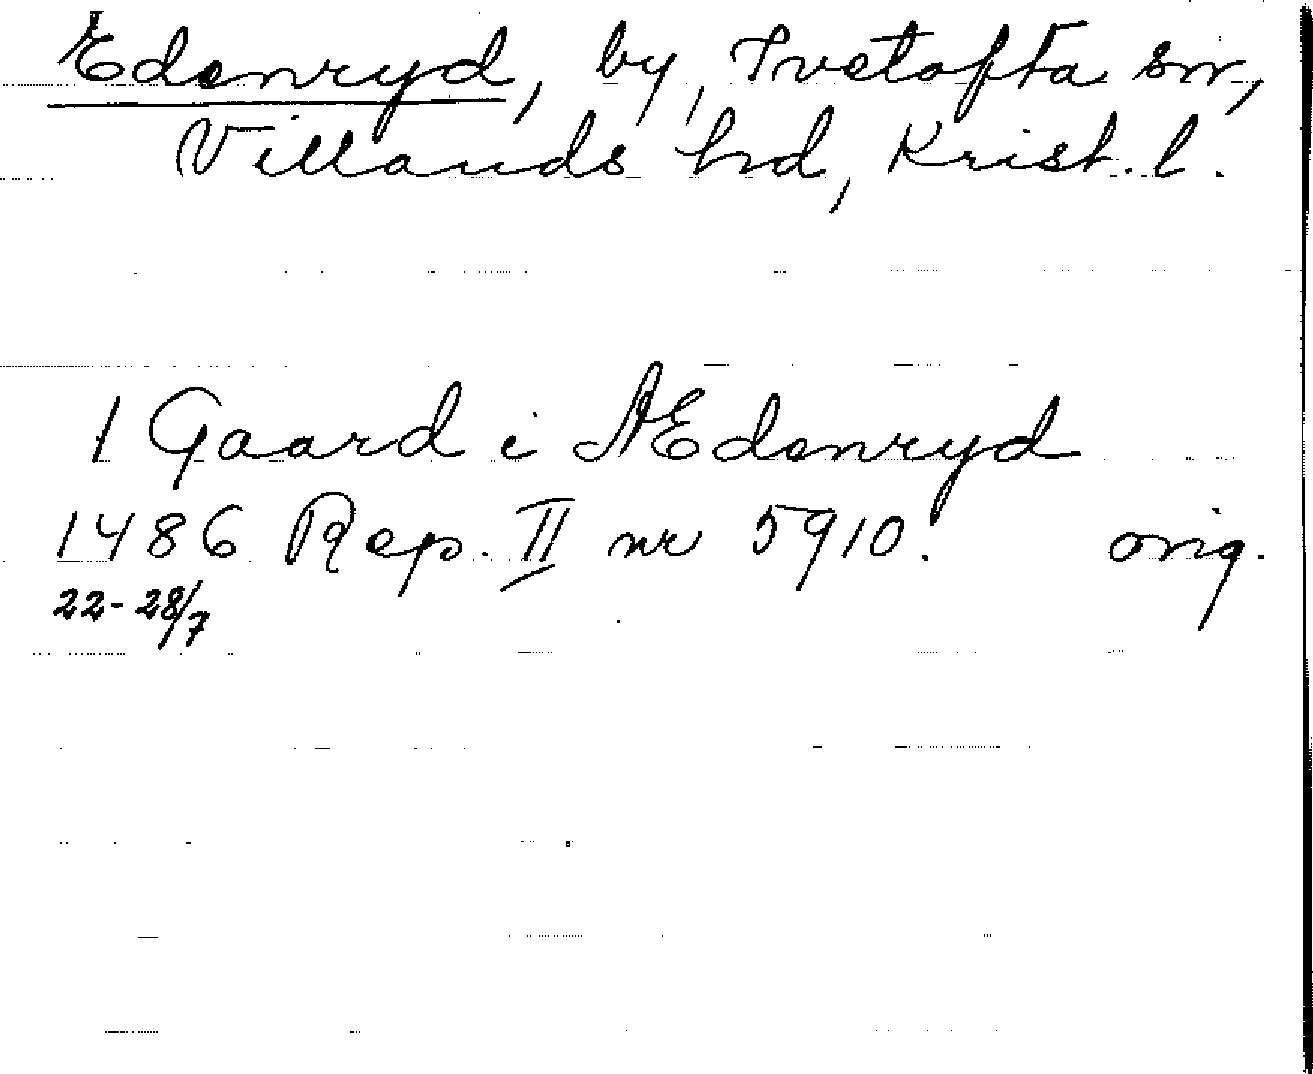 Edenryd, by, Ivetofta sn,
Villands hd, Krist. l.
1 Gaard i Ædenryd
1486 Rep. II nr 5910. orig.
22-28/7